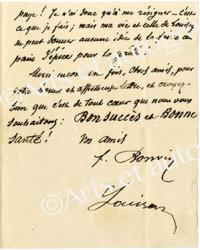 paye! Je n'ai donc qu'à me résigner — c'est
ce que je fais; mais ma vie et celle de Louison
ne peut donner aucune idée de la
paire pour la
Merci encore une fois, chers amis, pour
votre bonne et affectueuse lettre, et croyez
bien que c'est de tout cœur que nous vous
souhaitons: Bon succès et Bonne
Santé!
Vos amis
f. Bonvin
Louison
© Arts et autographes